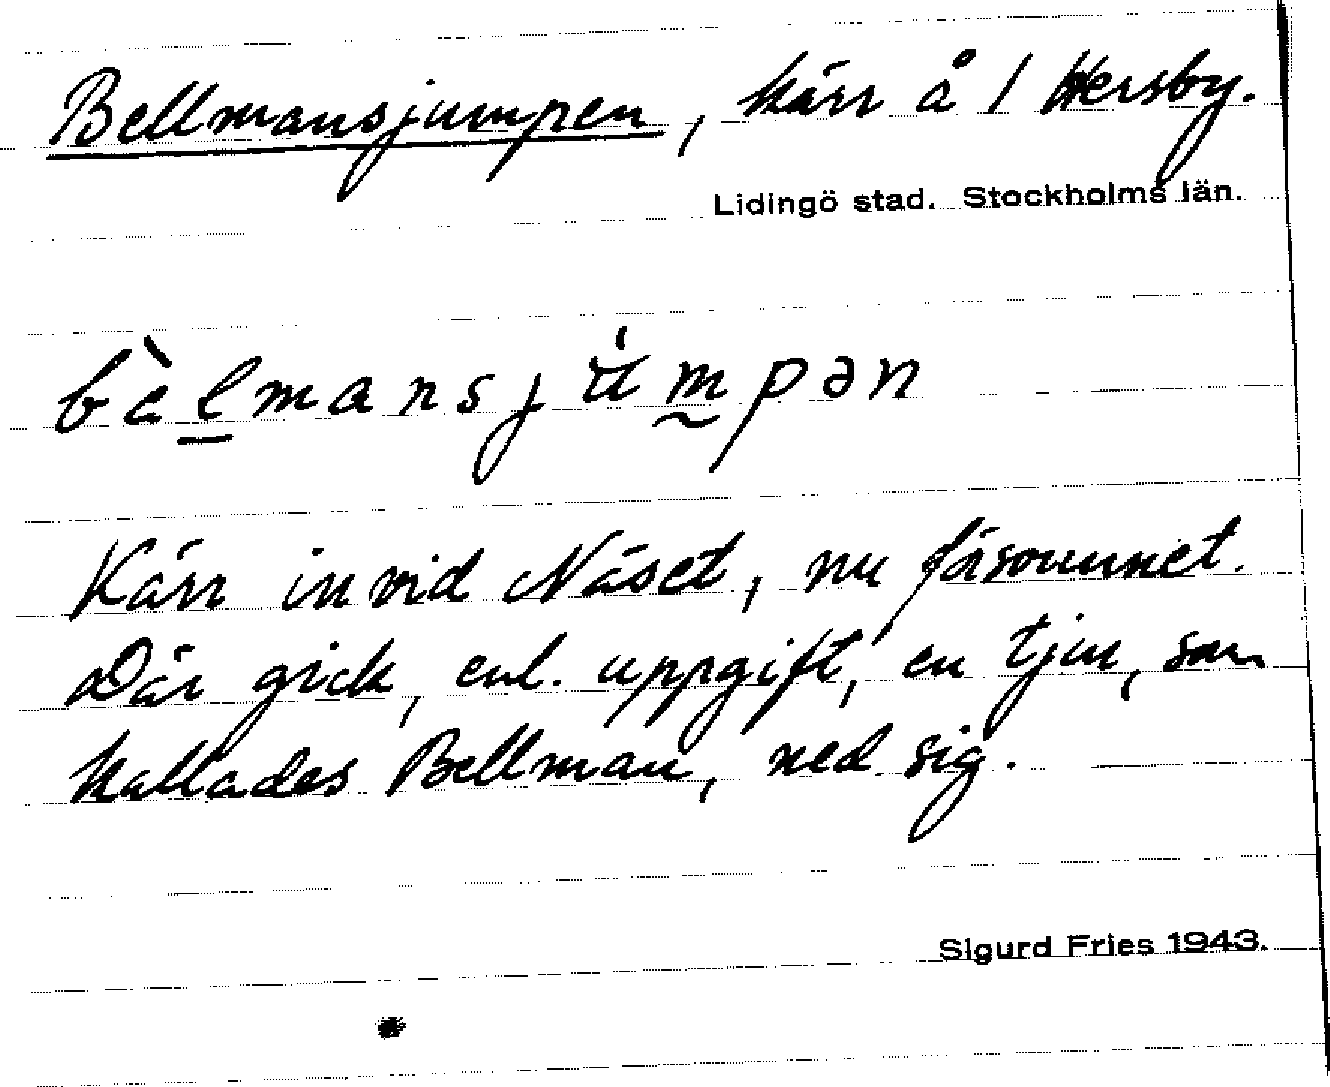 Bellmansjumpen, kärr å 1 Hersby.
Lidingö stad. Stockholms län.
bὲlmansjú̈mpən
Kärr invid Näset, nu försvunnet.
Där gick, enl. uppgift, en tjur, som
kallades Bellman, ned sig.
Sigurd Fries 1943.